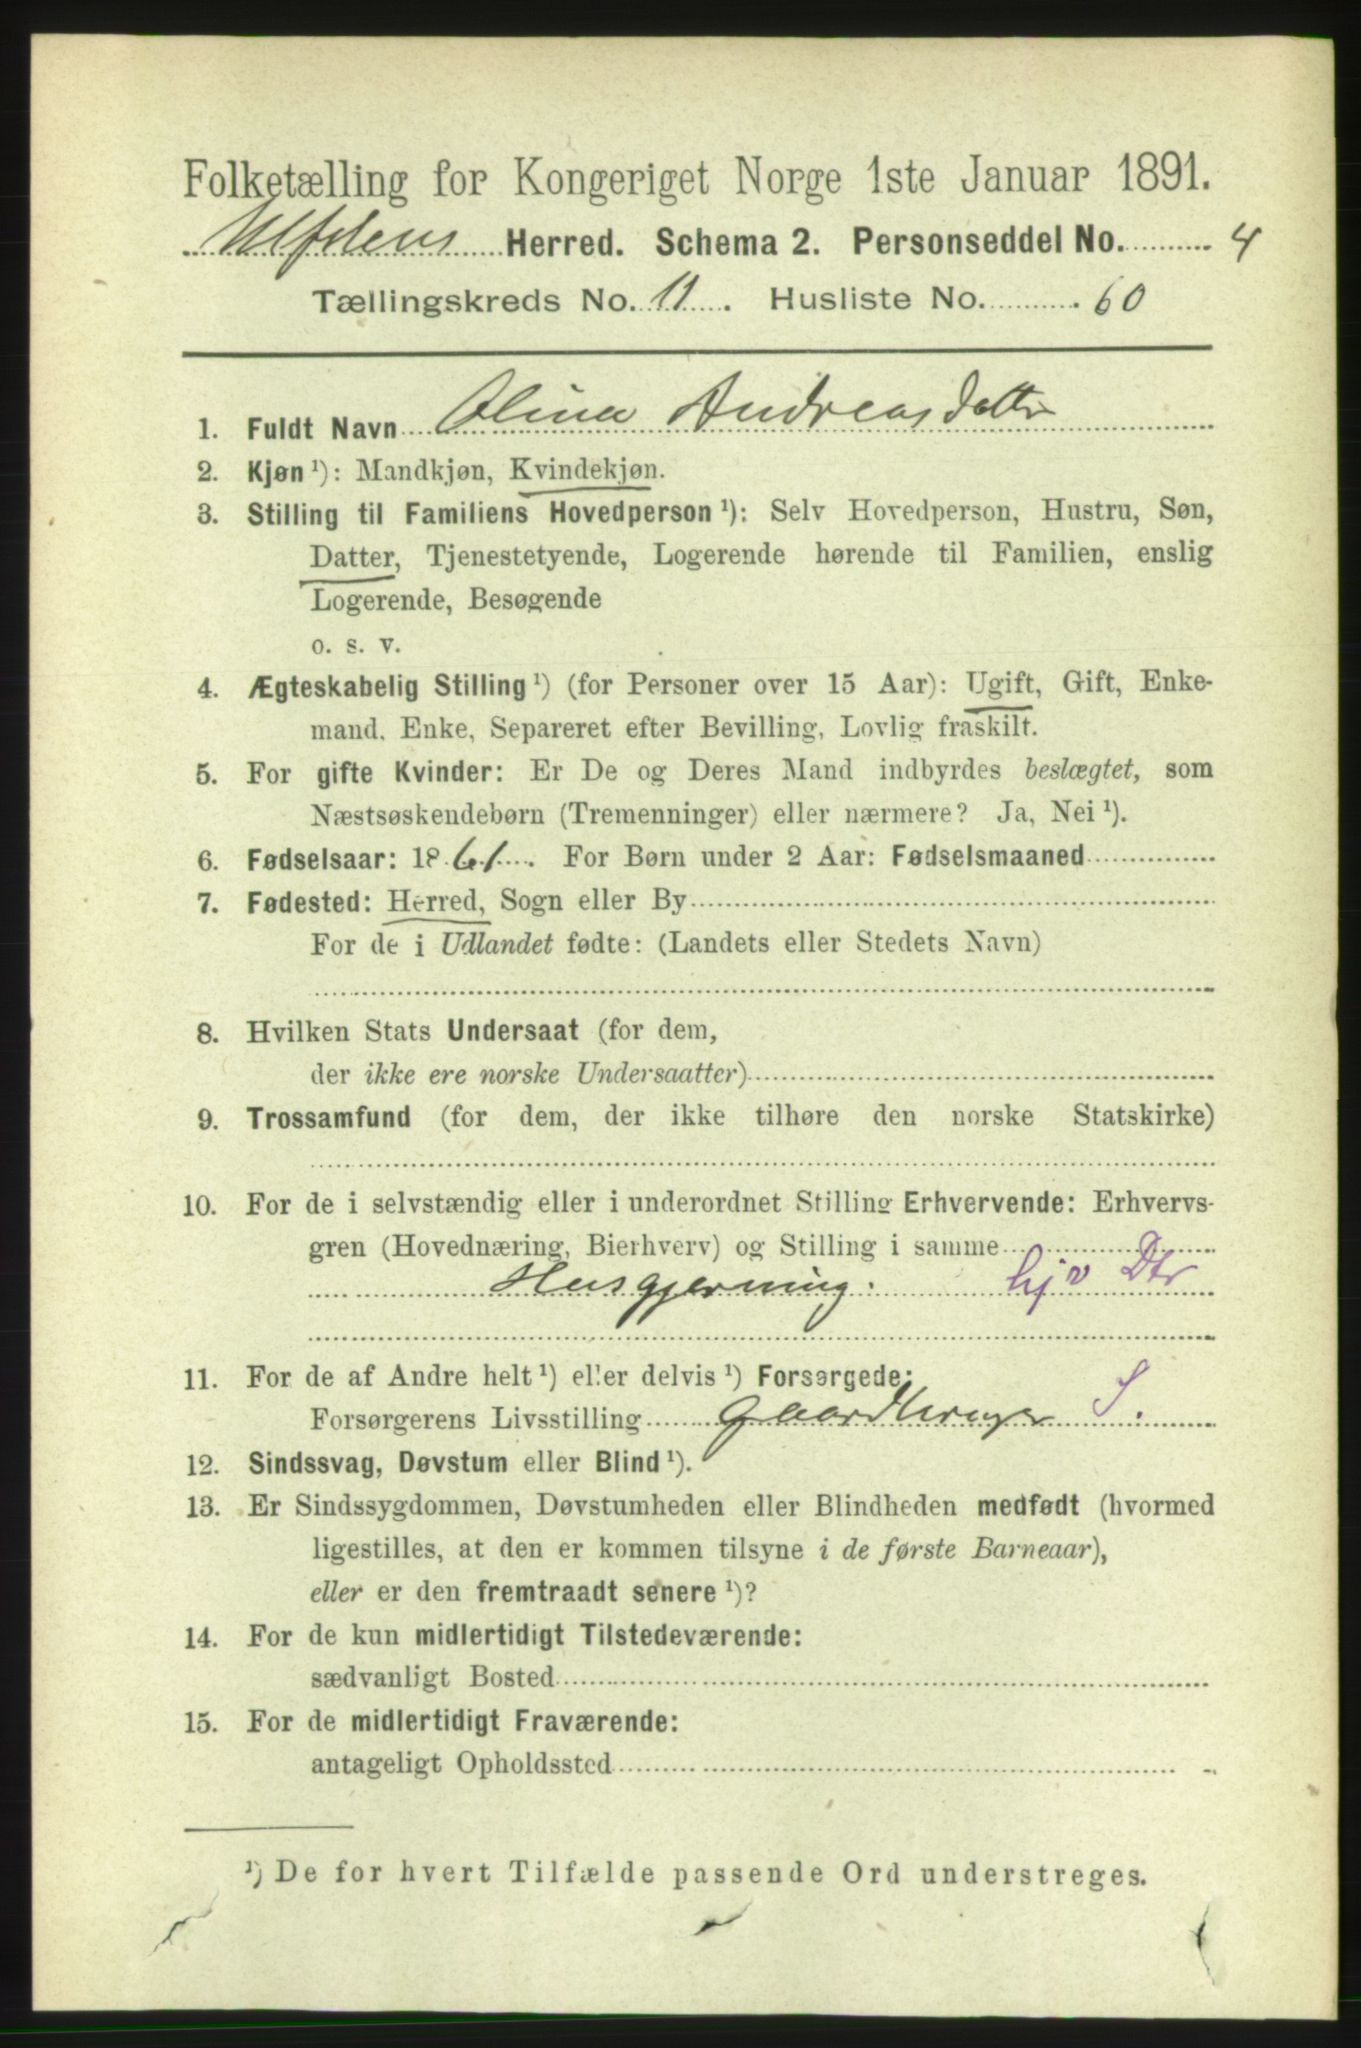 Folketælling for Kongeriget Norge 1ste Januar 1891.
Herred. Schema 2. Personseddel No. 4
Tællingskreds No. 11. Husliste No. 60
1. Fuldt Navn Olina Andreasdatter
2. Kjøn ¹): Mandkjøn, Kvindekjøn.
3. Stilling til Familiens Hovedperson ¹): Selv Hovedperson, Hustru, Søn,
Datter, Tjenestetyende, Logerende hørende til Familien, enslig
Logerende, Besøgende
o. s. v.
4. Ægteskabelig Stilling ¹) (for Personer over 15 Aar): Ugift, Gift, Enke-
mand, Enke, Separeret efter Bevilling, Lovlig fraskilt.
5. For gifte Kvinder: Er De og Deres Mand indbyrdes beslægtet, som
Næstsøskendebørn (Tremenninger) eller nærmere? Ja, Nei ¹).
6. Fødselsaar: 1861. For Børn under 2 Aar: Fødselsmaaned
7. Fødested: Herred, Sogn eller By
For de i Udlandet fødte: (Landets eller Stedets Navn)
8. Hvilken Stats Undersaat (for dem,
der ikke ere norske Undersaatter)
9. Trossamfund (for dem, der ikke tilhøre den norske Statskirke)
10. For de i selvstændig eller i underordnet Stilling Erhvervende: Erhvervs-
gren (Hovednæring, Bierhverv) og Stilling i samme
Husgjerning. hjv Dtr
11. For de af Andre helt ¹) eller delvis ¹) Forsørgede:
Forsørgerens Livsstilling Gaardbruger S.
12. Sindssvag, Døvstum eller Blind ¹).
13. Er Sindssygdommen, Døvstumheden eller Blindheden medfødt (hvormed
ligestilles, at den er kommen tilsyne i de første Barneaar),
eller er den fremtraadt senere ¹)?
14. For de kun midlertidigt Tilstedeværende:
sædvanligt Bosted
15. For de midlertidigt Fraværende:
antageligt Opholdssted
¹) De for hvert Tilfælde passende Ord understreges.